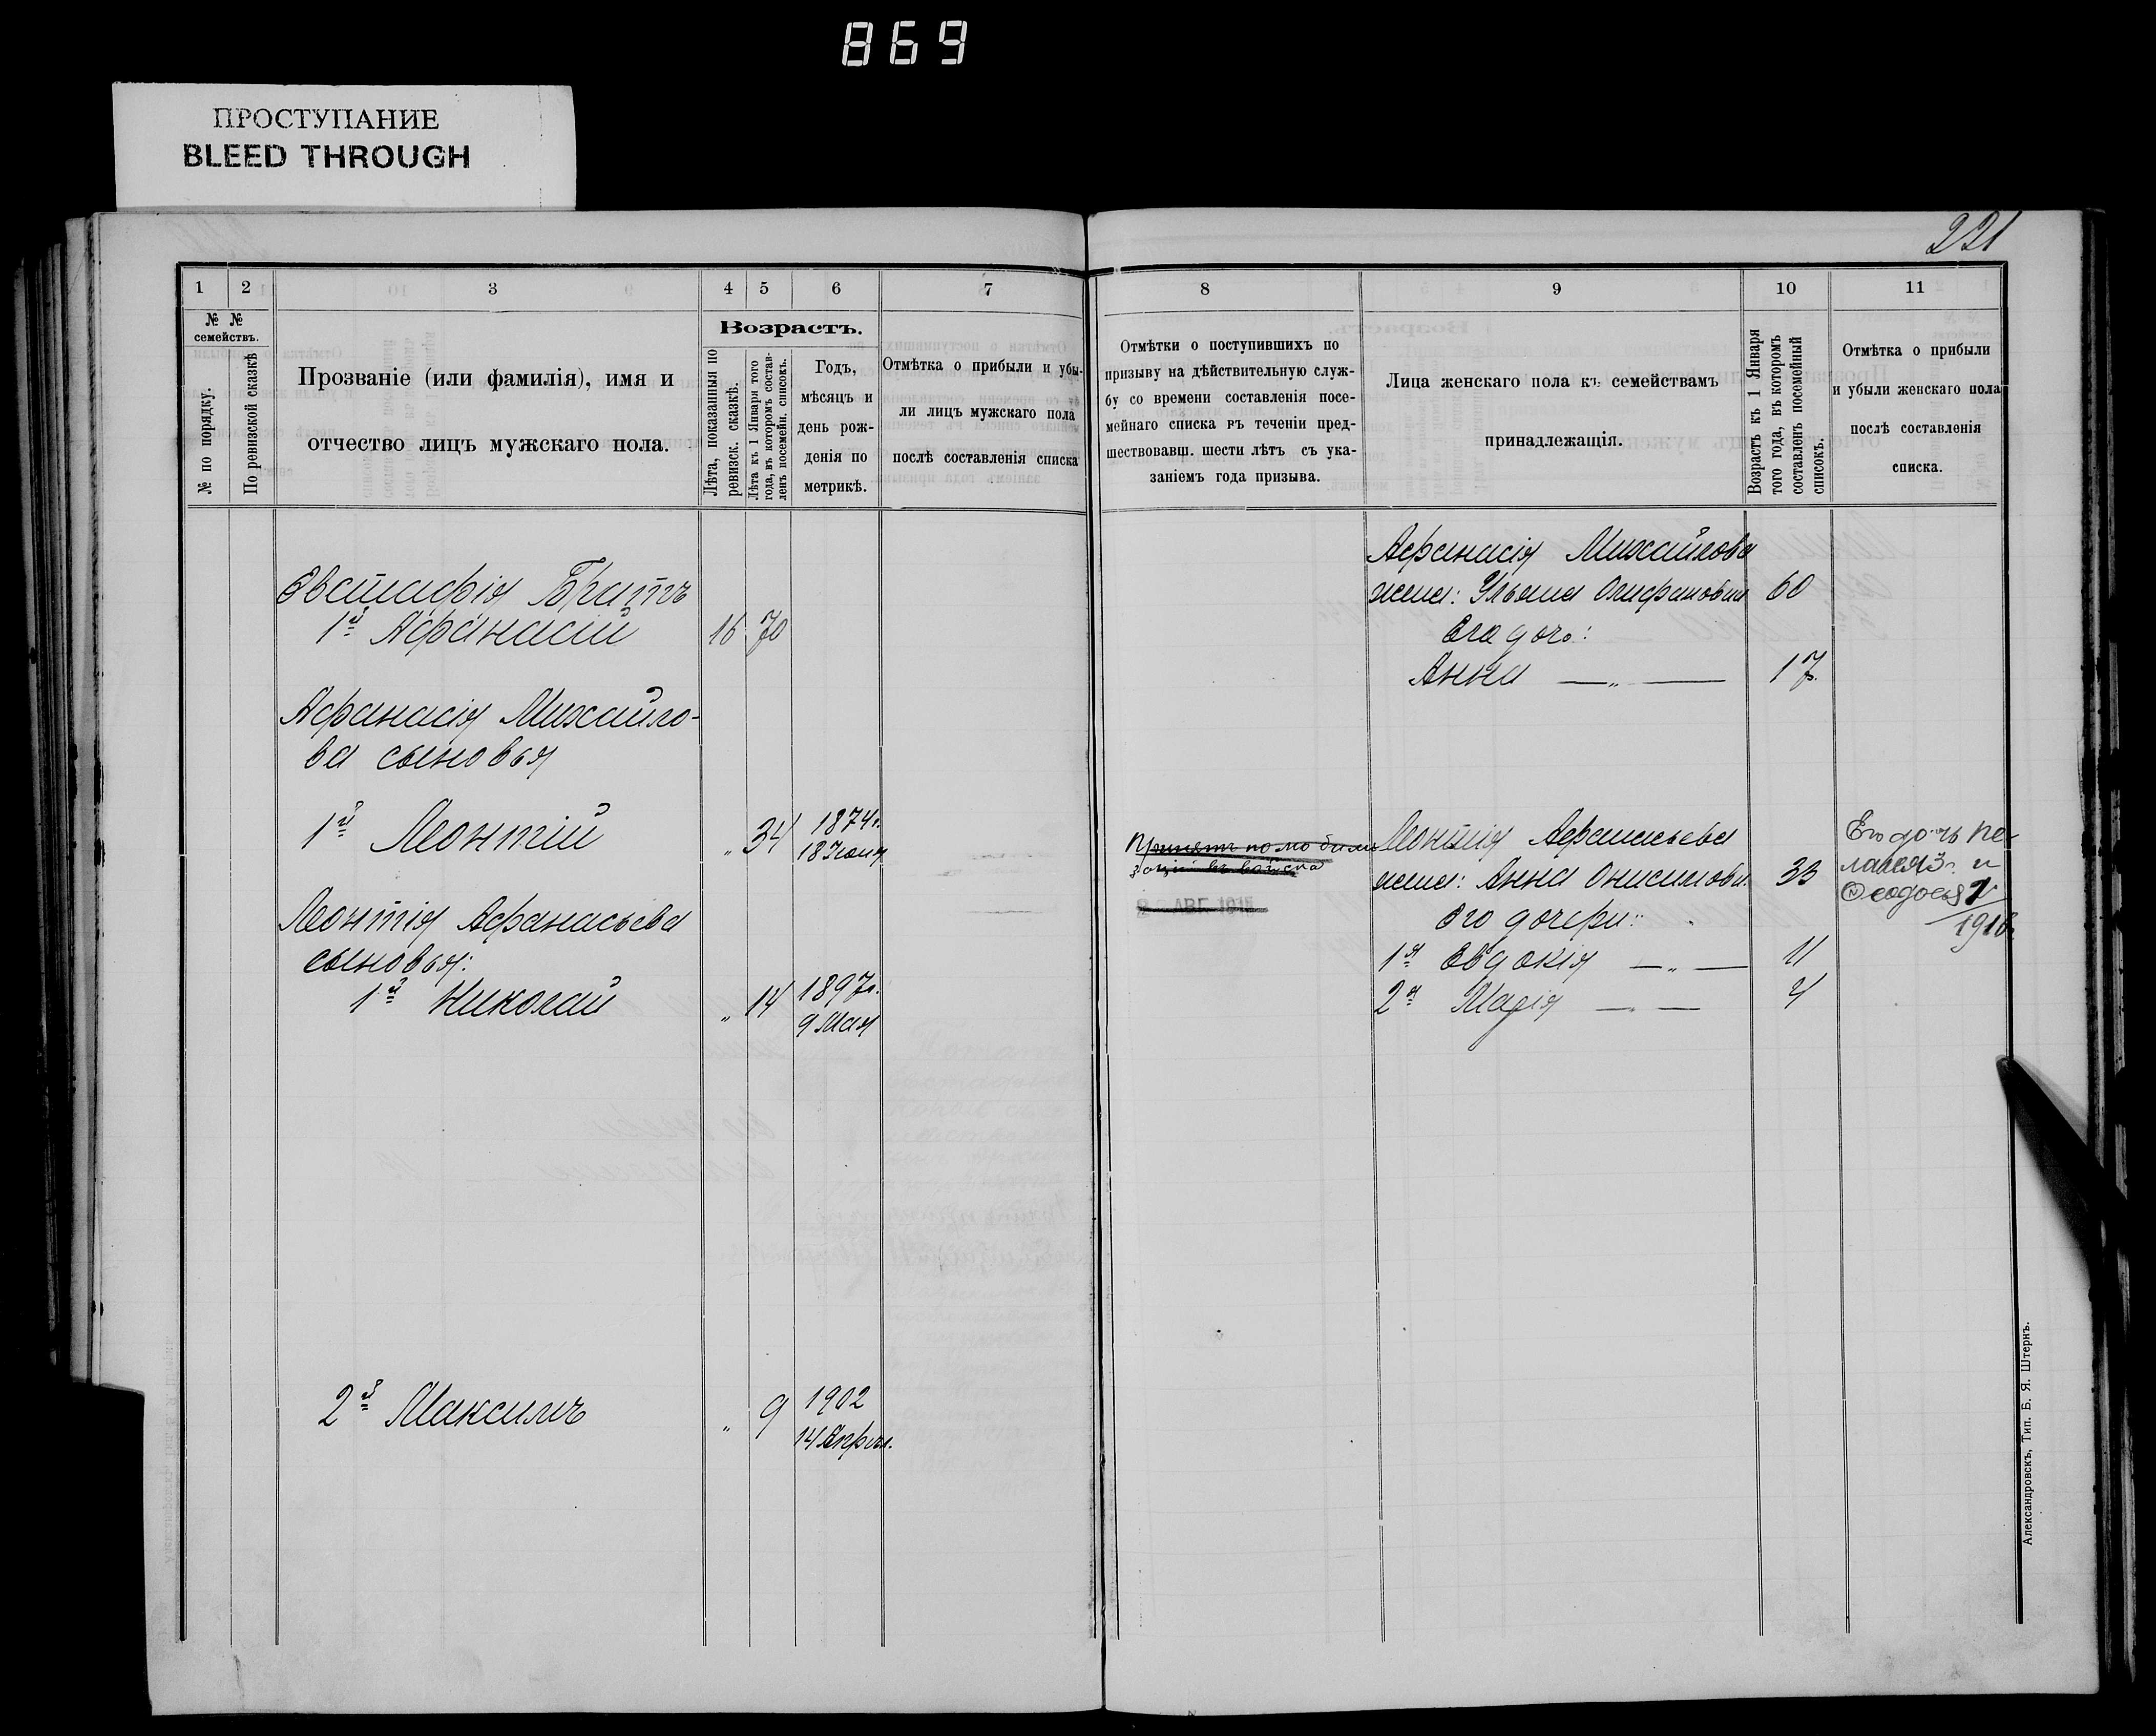 869
ПРОСТУПАНИЕ
BLEED THROUGH
221
1 2 3 4 5 6 7
№ №
семействъ.
№ по порядку.
По ревизской сказкѣ
Прозваніе (или фамилія), имя и
отчество лицъ мужскаго пола.
Возрастъ.
Лѣта, показанныя по
ревизск. сказкѣ.
Лѣта къ 1 Января того
года, въ которомъ состав-
ленъ посемейн. списокъ.
Годъ,
мѣсяцъ и
день рож-
денія по
метрикѣ.
Отмѣтка о прибыли и убы-
ли лицъ мужскаго пола
послѣ составленія списка
Евстафія Братъ
1й Афанасій 16 70
Афанасія Михайло-
ва сыновья
1й Леонтій „ 34 1874г.
18 Іюня
Леонтія Афанасьева
сыновья:
1й Николай „ 14 1897г.
9 Мая
2й Максимъ „ 9 1902
14 Апрѣл.
8 9 10 11
Отмѣтки о поступившихъ по
призыву на дѣйствительную служ-
бу со времени составленія посе-
мейнаго списка въ теченіи пред-
шествовавш. шести лѣтъ съ ука-
заніемъ года призыва.
Лица женскаго пола къ семействамъ
принадлежащія.
Возрастъ къ 1 Января
того года, въ которомъ
составленъ посемейный
списокъ.
Отмѣтка о прибыли
и убыли женскаго пола
послѣ составленія
списка.
Афанасія Михайлова
жена: Ульяна 60
Его дочь:
Анна —„— 17.
Принятъ по мобили
заціи въ войска
АВГ. 1915
Леонтія Афанасьева
жена: Анна Онисимова. 33
Его дочери:
1я Евдокія —„— 11
2я Марія — — 4
Его дочь Пе-
лагея 3г. и
Ѳеодосія
1916г.
Александровскъ, Тип. Б. Я. Штернъ.